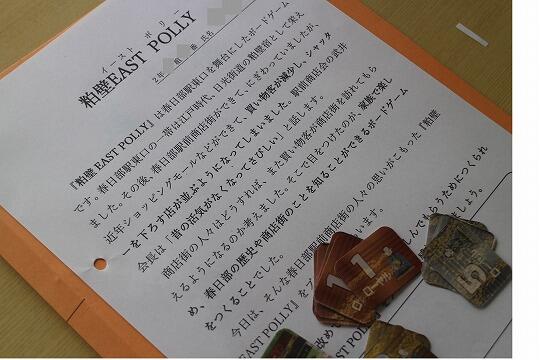 イースト ポリー
粕壁EAST POLLY
2年 組 番 氏名
『粕壁EAST POLLY』は春日部駅東口を舞台にしたボードゲーム
です。春日部駅東口の一帯は江戸時代、日光街道の粕壁宿として栄え
ました。その後、春日部駅前商店街ができて、にぎわっていましたが、
近年ショッピングモールなどができて、買い物客が減少し、シャッタ
ーを下ろす店が並ぶようになってしまいました。駅前商店会の武井
会長は「昔の活気がなくなってさびしい」と話します。
商店街の人々はどうすれば、また買い物客が商店街を訪れてもら
えるようになるのか考えました。そこで目をつけたのが、家族で楽し
め、春日部の歴史や商店街のことを知ることができるボードゲーム
をつくることでした。
今日は、そんな春日部駅前商店街の人々の思いがこもった『粕壁
EAST POLLY』を
います。
しんでもらうためにつくられ
POLLY』
改め
しょう。
1
1
ロイヤル
5